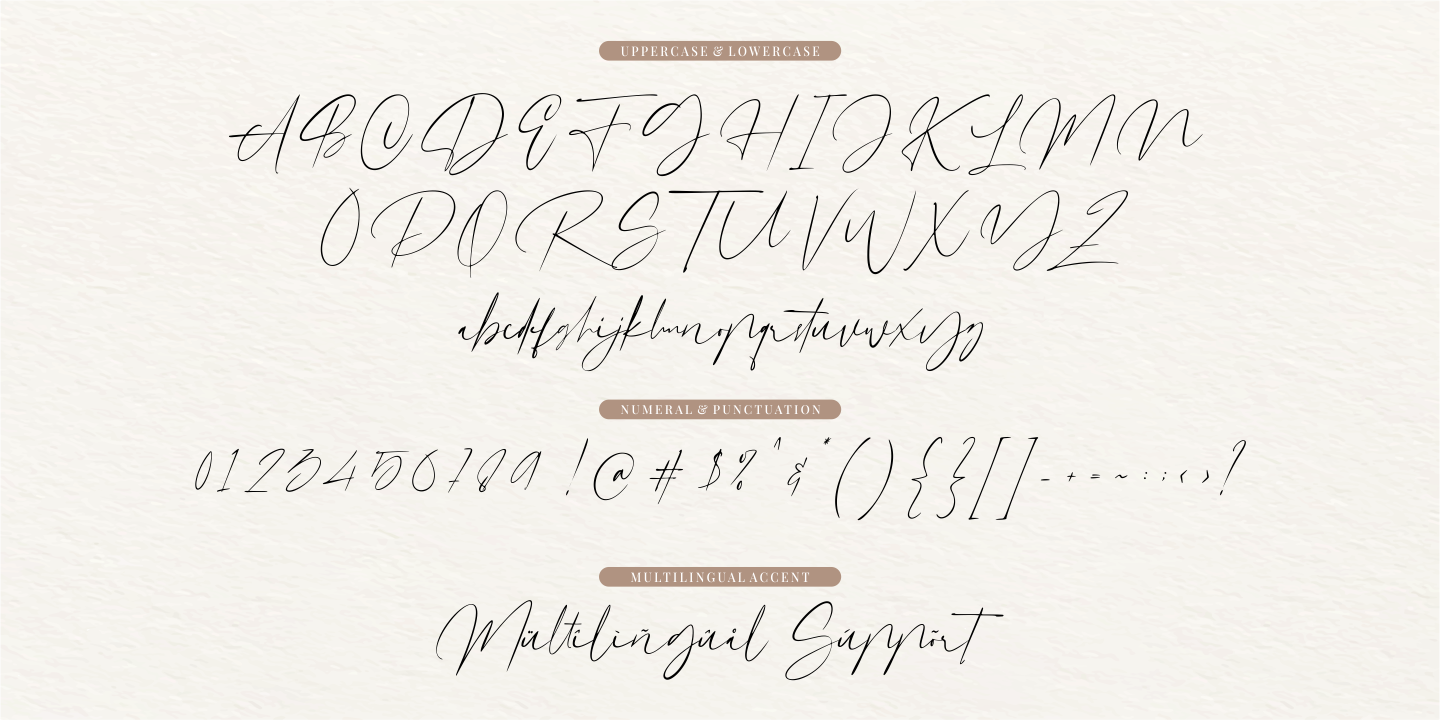 UPPERCASE & LOWERCASE
ABCDEFGHIJKLMN
OPQRSTUVWXYZ
abcdefghijklmnopqrstuvwxyz
NUMERAL & PUNCTUATION
0123456789 !@#$%^&*(){}[]-+=~:;<>?
MULTILINGUAL ACCENT
Mültílìñgúål Súppõrt